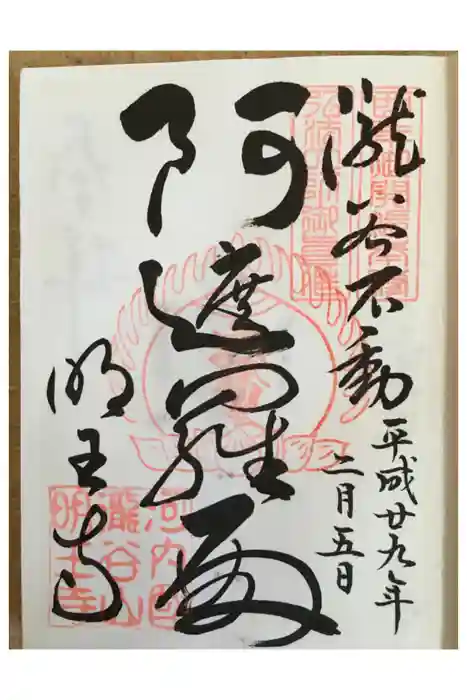 瀧谷不動
平成廿九年
二月五日
阿遮羅殿
明王寺
河内國
瀧谷山
明王寺